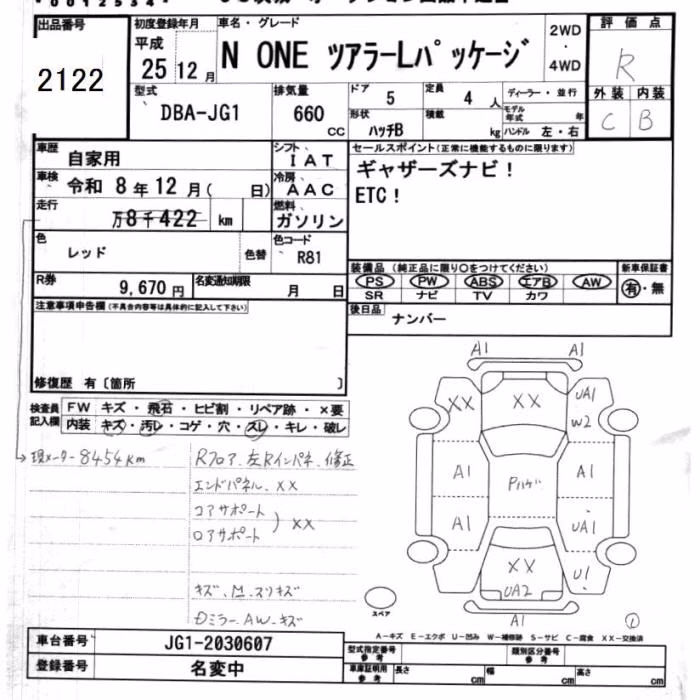 *0012534*
出品番号
2122
初度登録年月
平成
25 12月
車名・グレード
N ONE ツアラーLパッケージ
2WD
・
4WD
評価点
R
外装 内装
C B
型式
DBA-JG1
排気量
660
CC
ドア 5
定員 4 人
形状 ハッチB
積載 kg
ディーラー・並行
モデル年式 年
ハンドル 左・右
車歴 自家用
シフト IAT
車検 令和 8年12月( 日)
冷房 AAC
走行 万8千422 km
燃料 ガソリン
色 レッド
色替
色コード R81
R券 9,670円
名変通知期限 月 日
セールスポイント(正常に機能するものに限ります)
ギャザーズナビ!
ETC!
装備品(純正品に限り○をつけてください)
新車保証書
PS PW ABS エアB AW
有・無
SR ナビ TV カワ
後日品 ナンバー
注意事項申告欄(不具合内容等は具体的に記入して下さい)
修復歴 有〔箇所 〕
検査員記入欄
FW キズ・飛石・ヒビ割・リペア跡・×要
内装 キズ・汚レ・コゲ・穴・スレ・キレ・破レ
現メーター8454km
Rフロア、左Rインパネ、修正
エンドパネル、XX
コアサポート
ロアサポート
)XX
キズ、凹、スリキズ
Dミラー、AW、キズ
A1 A1
XX XX UA1
W2
A1 Pハゲ A1
A1 UA1
XX U1
UA2
A1
スペア
①
A-キズ E-エクボ U-凹み W-補修跡 S-サビ C-腐食 XX-交換済
車台番号 JG1-2030607
登録番号 名変中
型式指定番号 参考
類別区分番号 参考
車庫証明用 参考
長さ cm
幅 cm
高さ cm